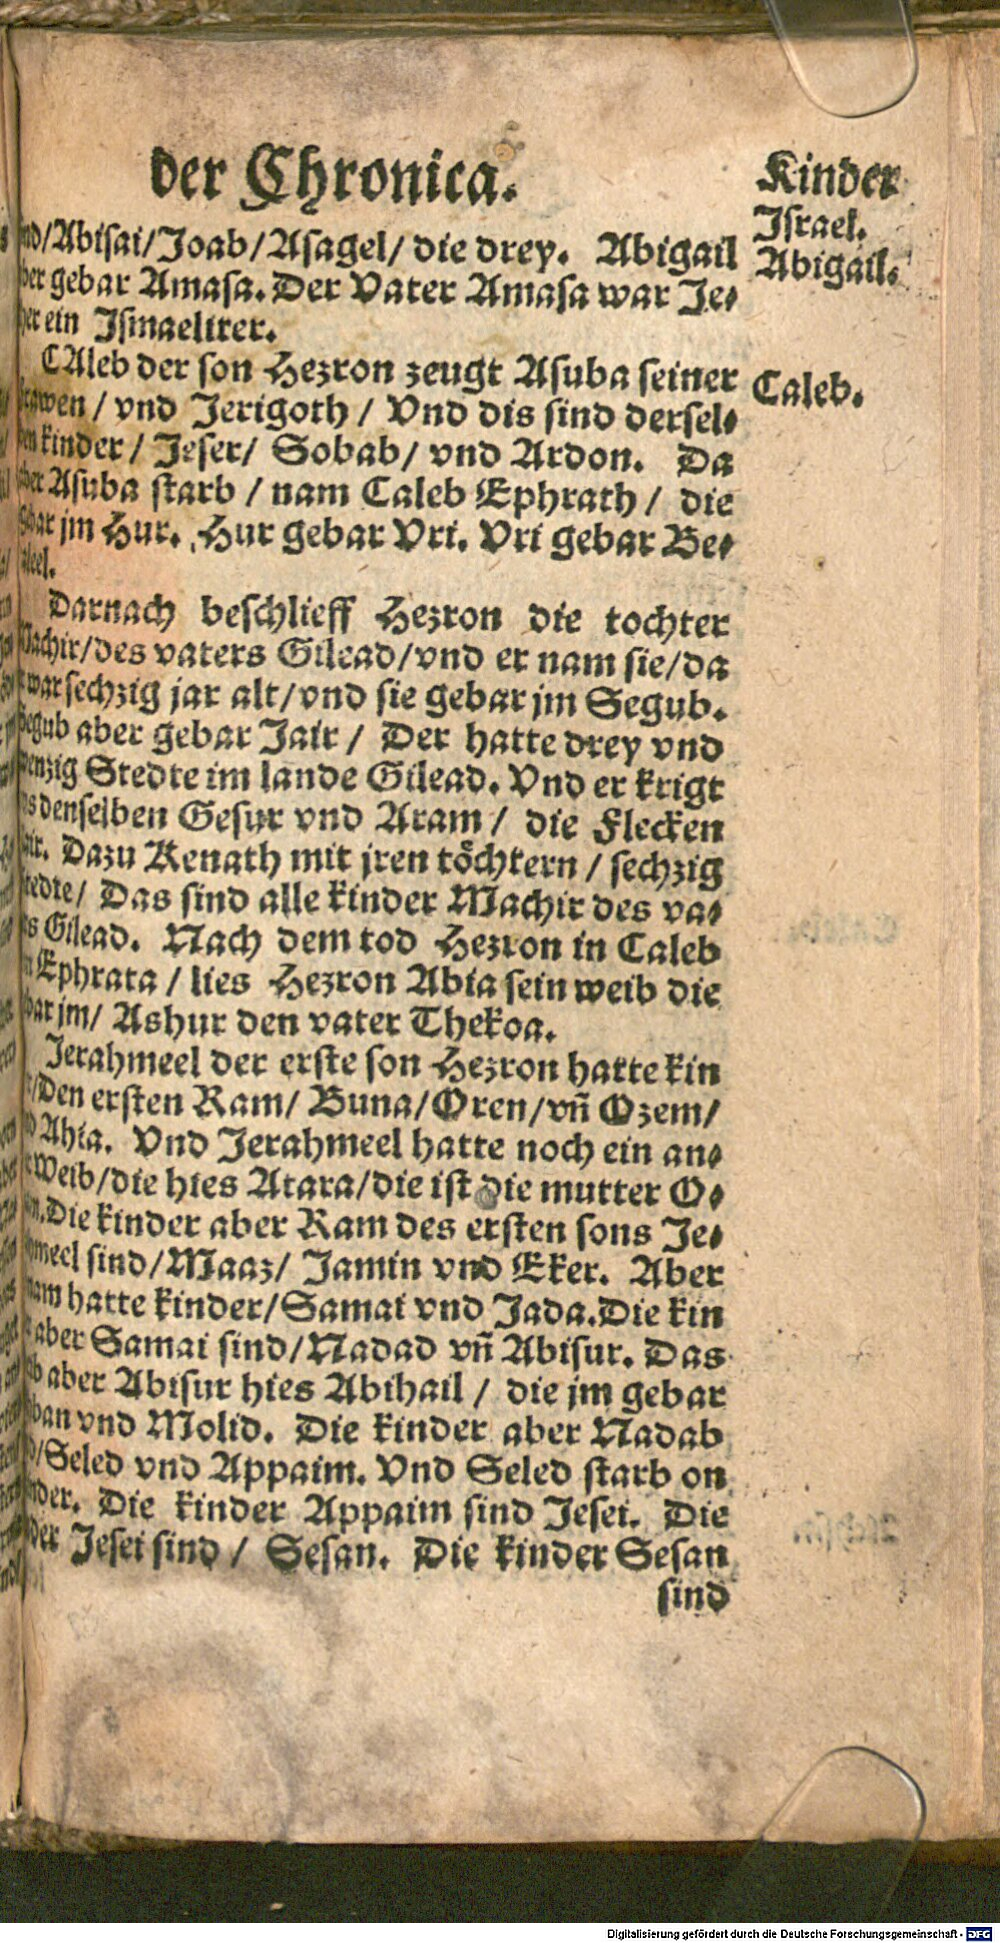 der Chronica.
Kinder
Israel.
nd/Abisai/Joab/Asagel/ die drey. Abigail
Abigail.
ber gebar Amasa. Der Vater Amasa war Je⸗
her ein Ismaeliter.
CAleb der son Hezron zeugt Asuba seiner
Caleb.
frawen / vnd Jerigoth / Vnd dis sind dersel⸗
ben kinder / Jeser/ Sobab/ vnd Ardon. Da
ber Asuba starb / nam Caleb Ephrath / die
gebar jm Hur. Hur gebar Vri. Vri gebar Be⸗
aleel.
Darnach beschlieff Hezron die tochter
Machir/des vaters Gilead/vnd er nam sie/da
war sechzig jar alt/vnd sie gebar jm Segub.
Segub aber gebar Jair / Der hatte drey vnd
wenzig Stedte im lande Gilead. Vnd er krigt
us denselben Gesur vnd Aram / die Flecken
Jair. Dazu Kenath mit jren töchtern / sechzig
tedte/ Das sind alle kinder Machir des va⸗
rs Gilead. Nach dem tod Hezron in Caleb
n Ephrata / lies Hezron Abia sein weib die
bar jm/ Ashur den vater Thekoa.
Jerahmeel der erste son Hezron hatte kin
r/Den ersten Ram/ Buna/Oren/vñ Ozem/
d Ahia. Vnd Jerahmeel hatte noch ein an⸗
r Weib/die hies Atara/die ist die mutter O⸗
m. Die kinder aber Ram des ersten sons Je⸗
hmeel sind/Maaz/ Jamin vnd Eker. Aber
nam hatte kinder/Samai vnd Jada. Die kin
r aber Samai sind/Nadad vñ Abisur. Das
ib aber Abisur hies Abihail / die jm gebar
hban vnd Molid. Die kinder aber Nadab
d/Seled vnd Appaim. Vnd Seled starb on
nder. Die kinder Appaim sind Jesei. Die
der Jesei sind / Sesan. Die kinder Sesan
sind
Digitalisierung gefördert durch die Deutsche Forschungsgemeinschaft - DFG